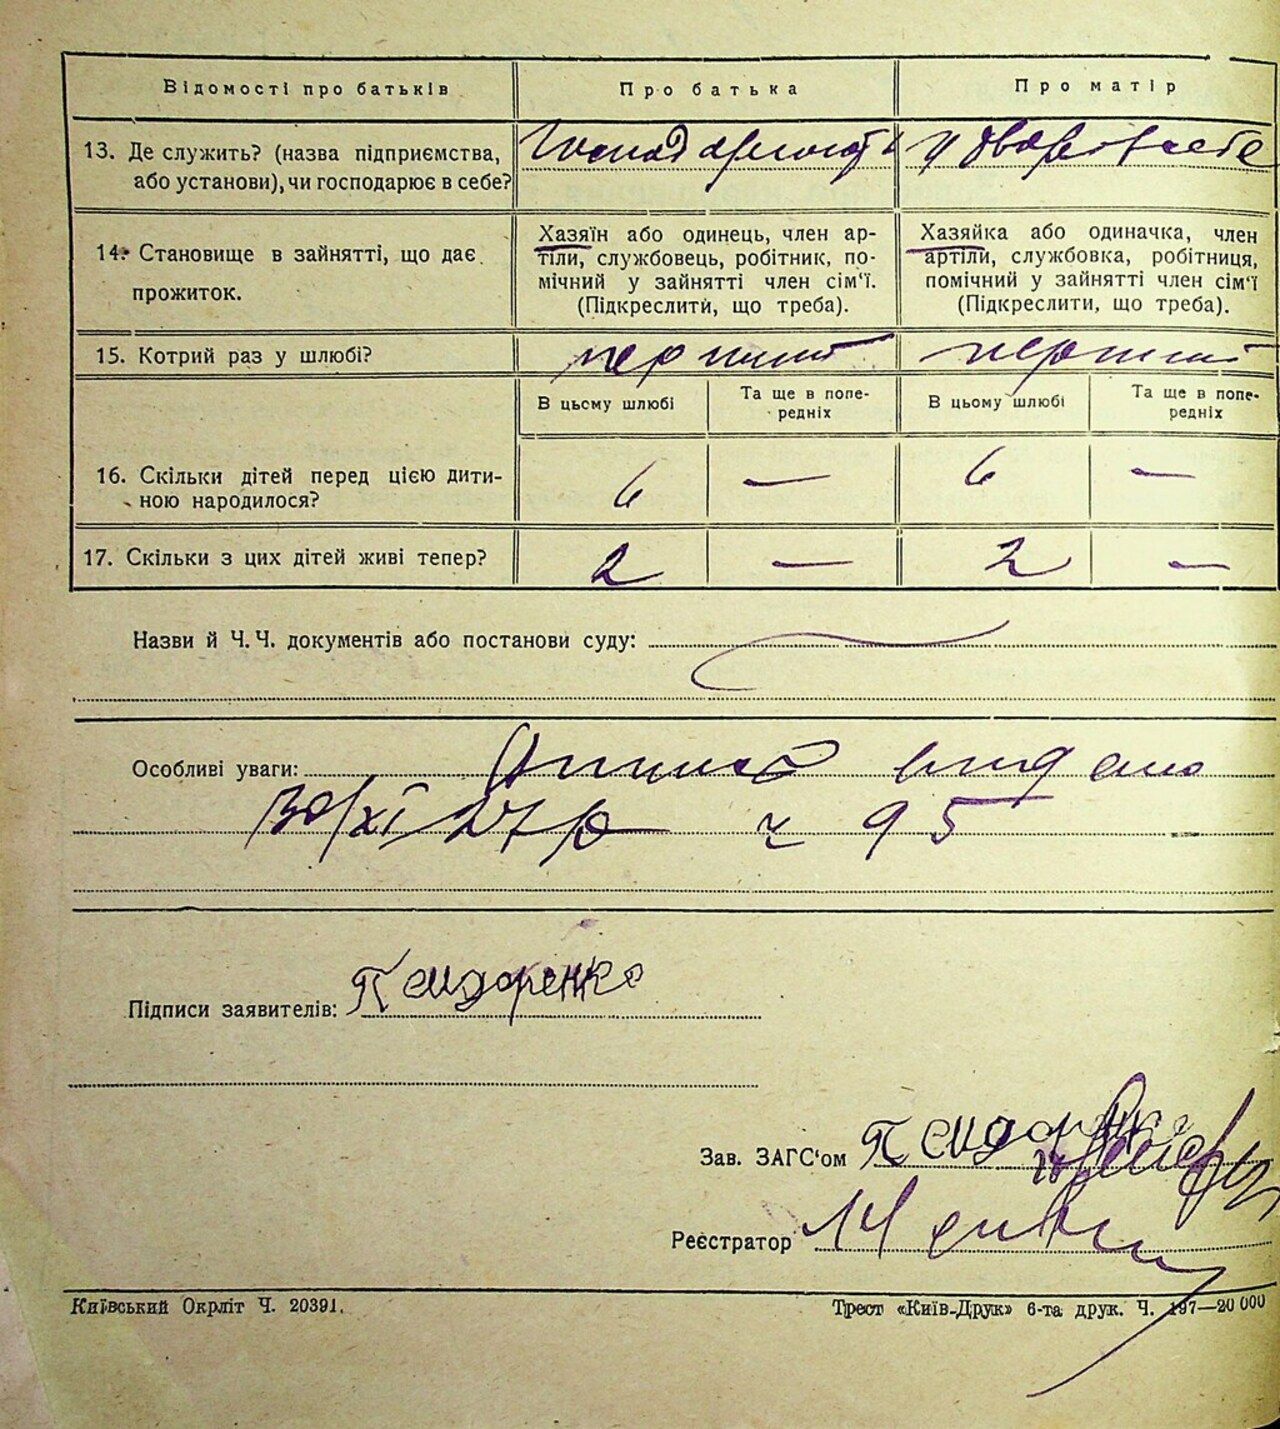 Відомості про батьків Про батька Про матір
13. Де служить? (назва підприємства, господарюють у
або установи), чи господарює в себе?
14. Становище в зайнятті, що дає прожиток.
Хазяїн або одинець, член ар-
тіли, службовець, робітник, по-
мічний у зайнятті член сім'ї.
(Підкреслити, що треба).
Хазяйка або одиначка, член
артіли, службовка, робітниця,
помічний у зайнятті член сім'ї
(Підкреслити, що треба).
15. Котрий раз у шлюбі? перший перший
В цьому шлюбі Та ще в попе- В цьому шлюбі Та ще в попе-
редніх редніх
16. Скільки дітей перед цією дити- 6 — 6 —
ною народилося?
17. Скільки з цих дітей живі тепер? 2 — 2 —
Назви й Ч. Ч. документів або постанови суду: —
Особливі уваги: видано
30/XI 27 р ч 95
Підписи заявителів:
Зав. ЗАГС'ом
Реєстратор
Київський Окрліт Ч. 20391.
Трест «Київ-Друк» 6-та друк. Ч. 197—20 000